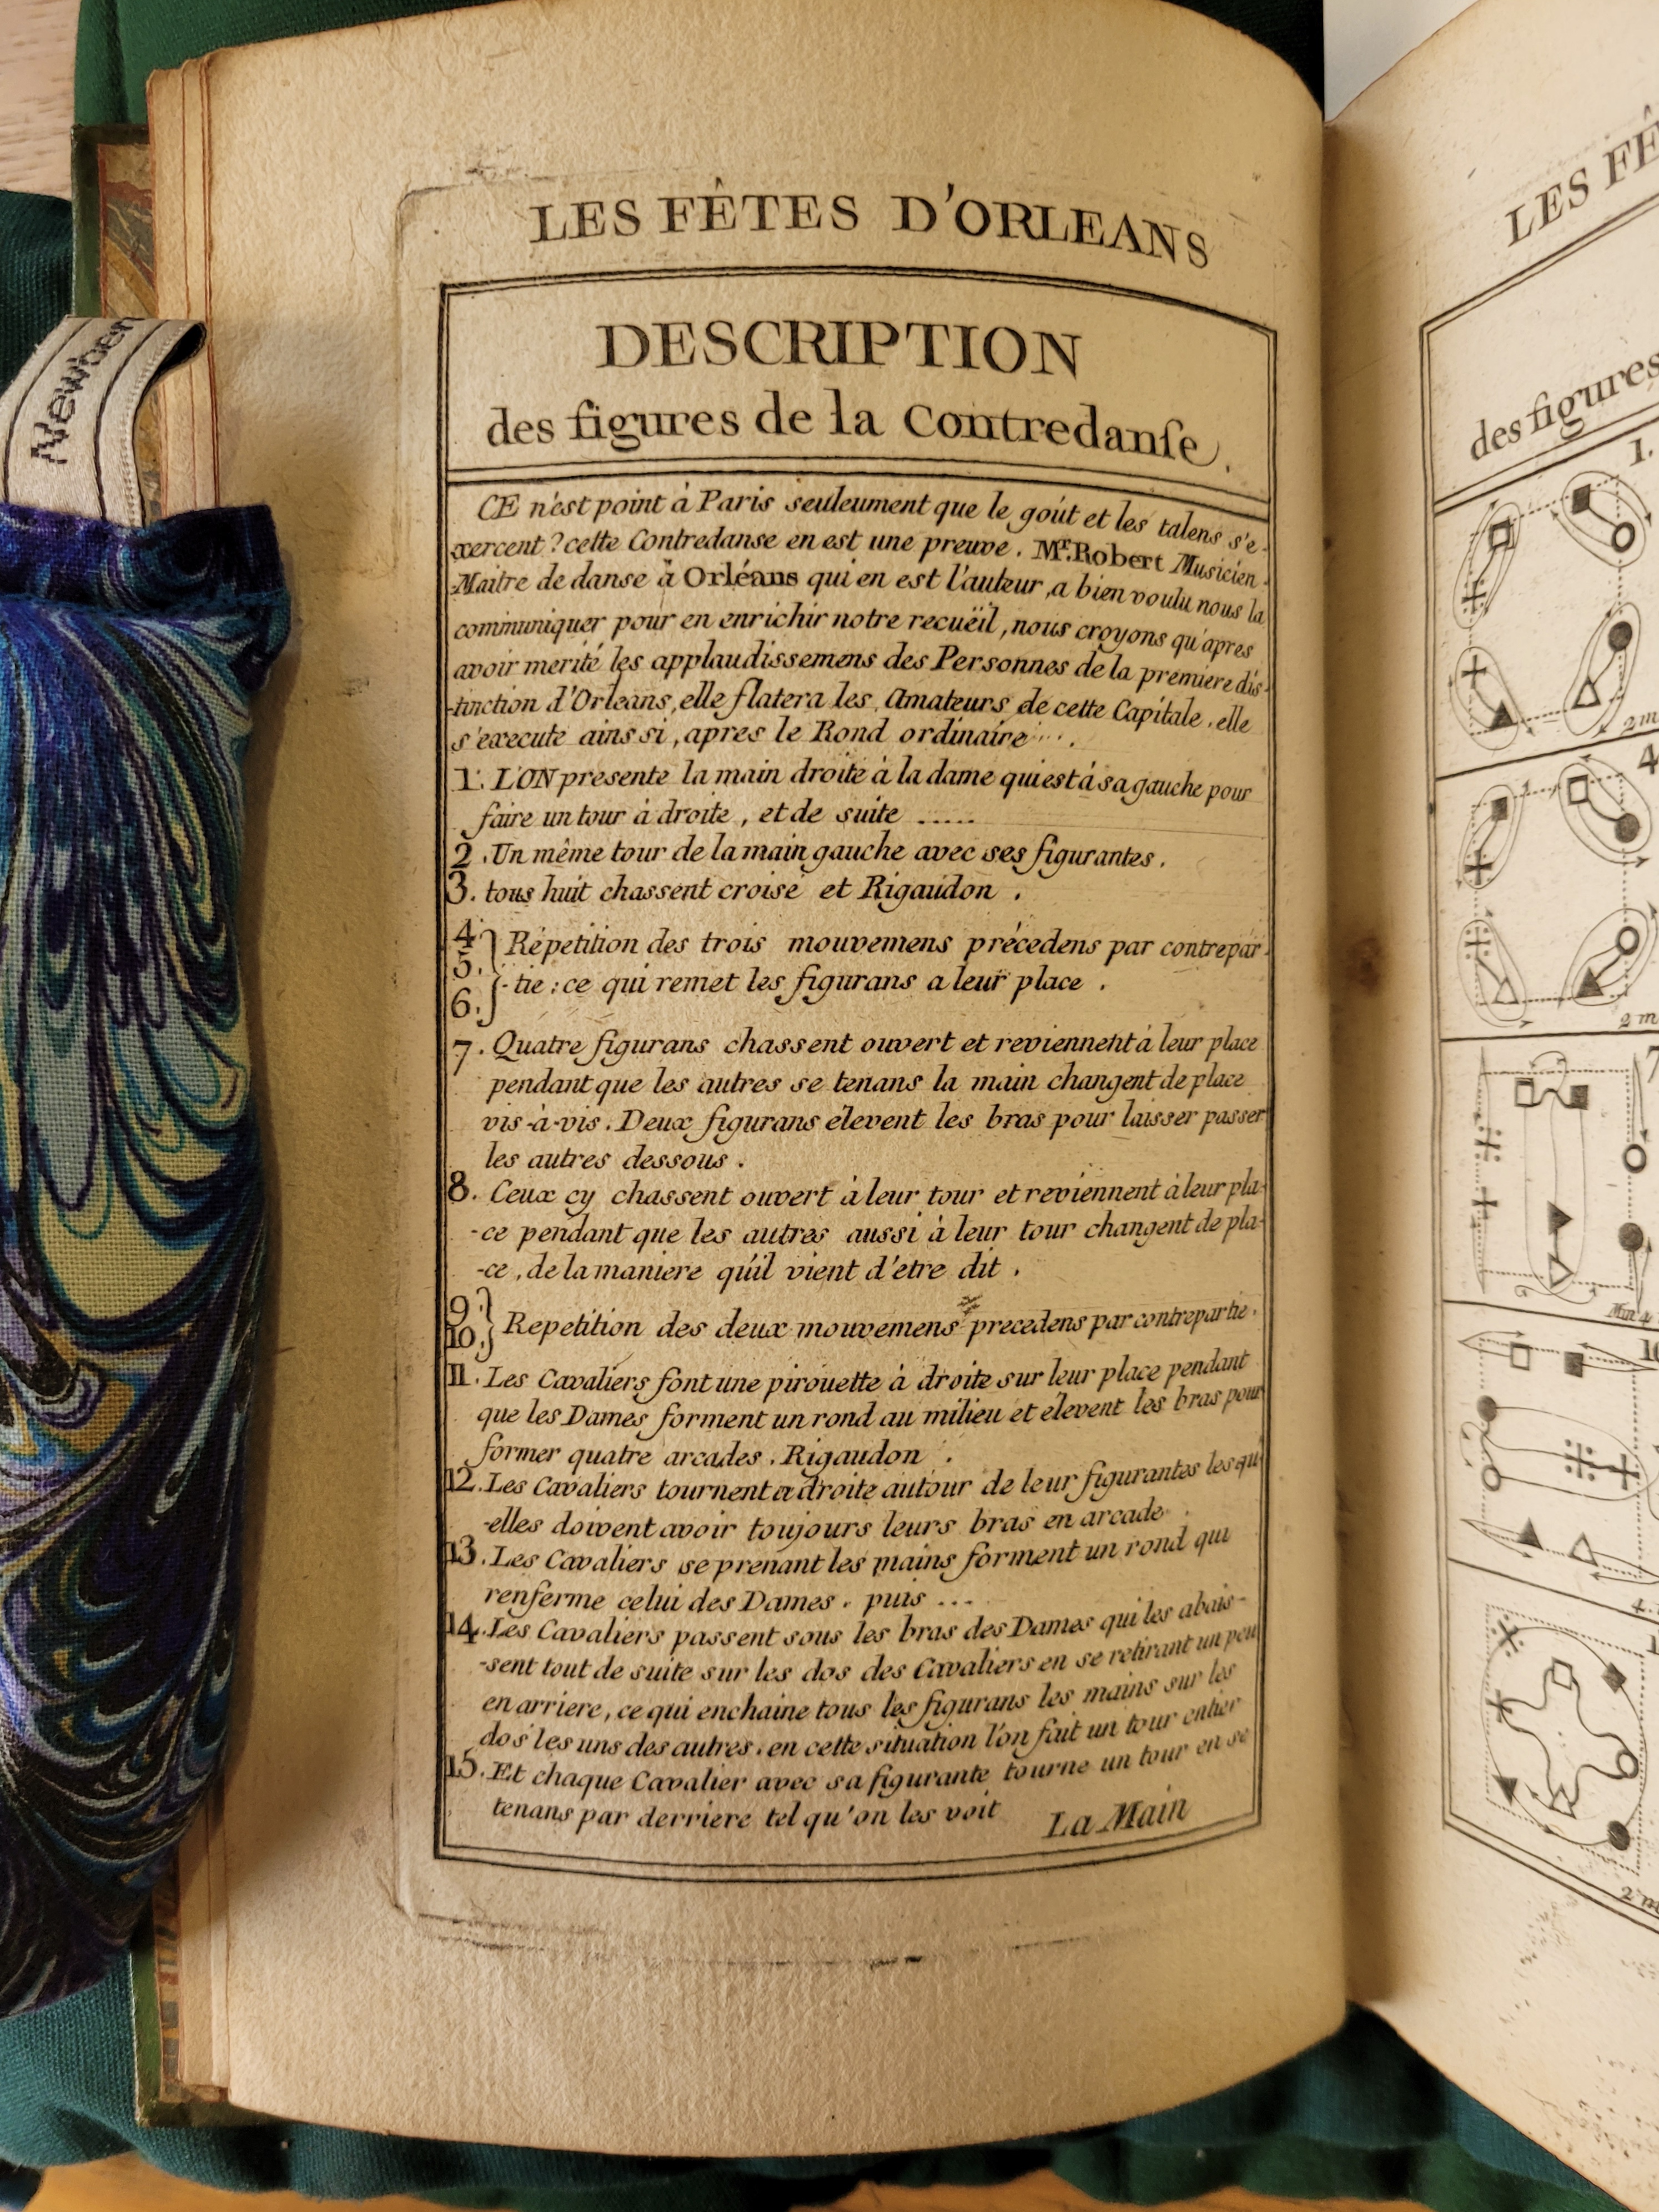 Newber
LES FÊTES D'ORLEANS
DESCRIPTION
des figures de la Contredanse.
CE n'est point à Paris seuleument que le goút et les talens s'e-
xercent? cette Contredanse en est une preuve. Mr. Robert Musicien-
Maitre de danse à Orléans qui en est l'auteur, a bien voulu nous la
communiquer pour en enrichir notre recuëil, nous croyons qu'apres
avoir merité les applaudissemens des Personnes de la premiere dis-
-tinction d'Orleans, elle flatera les Amateurs de cette Capitale. elle
s'execute ainssi, apres le Rond ordinaire ....
1. L'ON presente la main droite à la dame qui est à sa gauche pour
faire un tour à droite, et de suite .....
2. Un même tour de la main gauche avec ses figurantes.
3. tous huit chassent croisé et Rigaudon.
4.
5.
6.
Répetition des trois mouvemens précedens par contrepar-
-tie: ce qui remet les figurans a leur place.
7. Quatre figurans chassent ouvert et reviennent à leur place
pendant que les autres se tenans la main changent de place
vis-à-vis. Deux figurans élevent les bras pour laisser passer
les autres dessous.
8. Ceux cy chassent ouvert à leur tour et reviennent à leur pla-
-ce pendant que les autres aussi à leur tour changent de pla-
-ce, de la maniere qu'il vient d'etre dit.
9.
10.
Repetition des deux mouvemens precedens par contrepartie.
11. Les Cavaliers font une pirouette à droite sur leur place pendant
que les Dames forment un rond au milieu et élevent les bras pour
former quatre arcades. Rigaudon.
12. Les Cavaliers tournent a droite autour de leur figurantes lesqu-
-elles doivent avoir toujours leurs bras en arcade.
13. Les Cavaliers se prenant les mains forment un rond qui
renferme celui des Dames. puis ...
14. Les Cavaliers passent sous les bras des Dames qui les abais-
-sent tout de suite sur les dos des Cavaliers en se retirant un peu
en arriere, ce qui enchaine tous les figurans les mains sur les
dos les uns des autres. en cette situation l'on fait un tour entier
15. Et chaque Cavalier avec sa figurante tourne un tour en se
tenans par derriere tel qu'on les voit
La Main
LES FÊ
des figures
1.
2 m
4
2 m
7
10
2 m